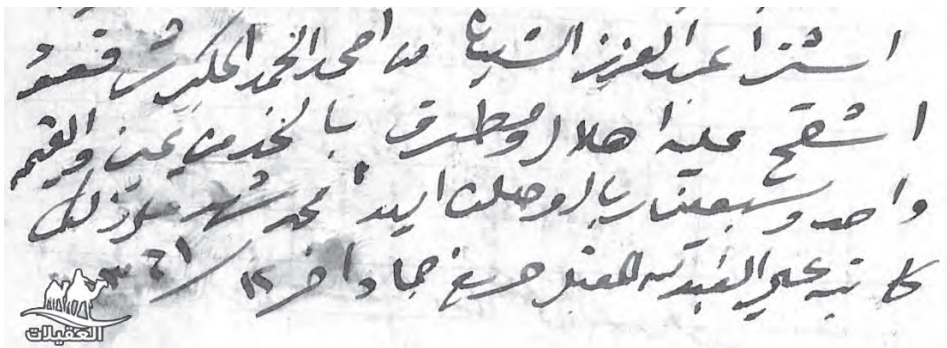 اشترا عبدالعزيز الشياع من احمد الحمد
اشقح عليه اهلال ومطرق بالخد من يمين والقيمه
واحد وسبعين ريال وصلت اليد شهد على ذلك
كاتبه علي العبدالله المقبل حرر في جماد اخر ١٢
العقيلات